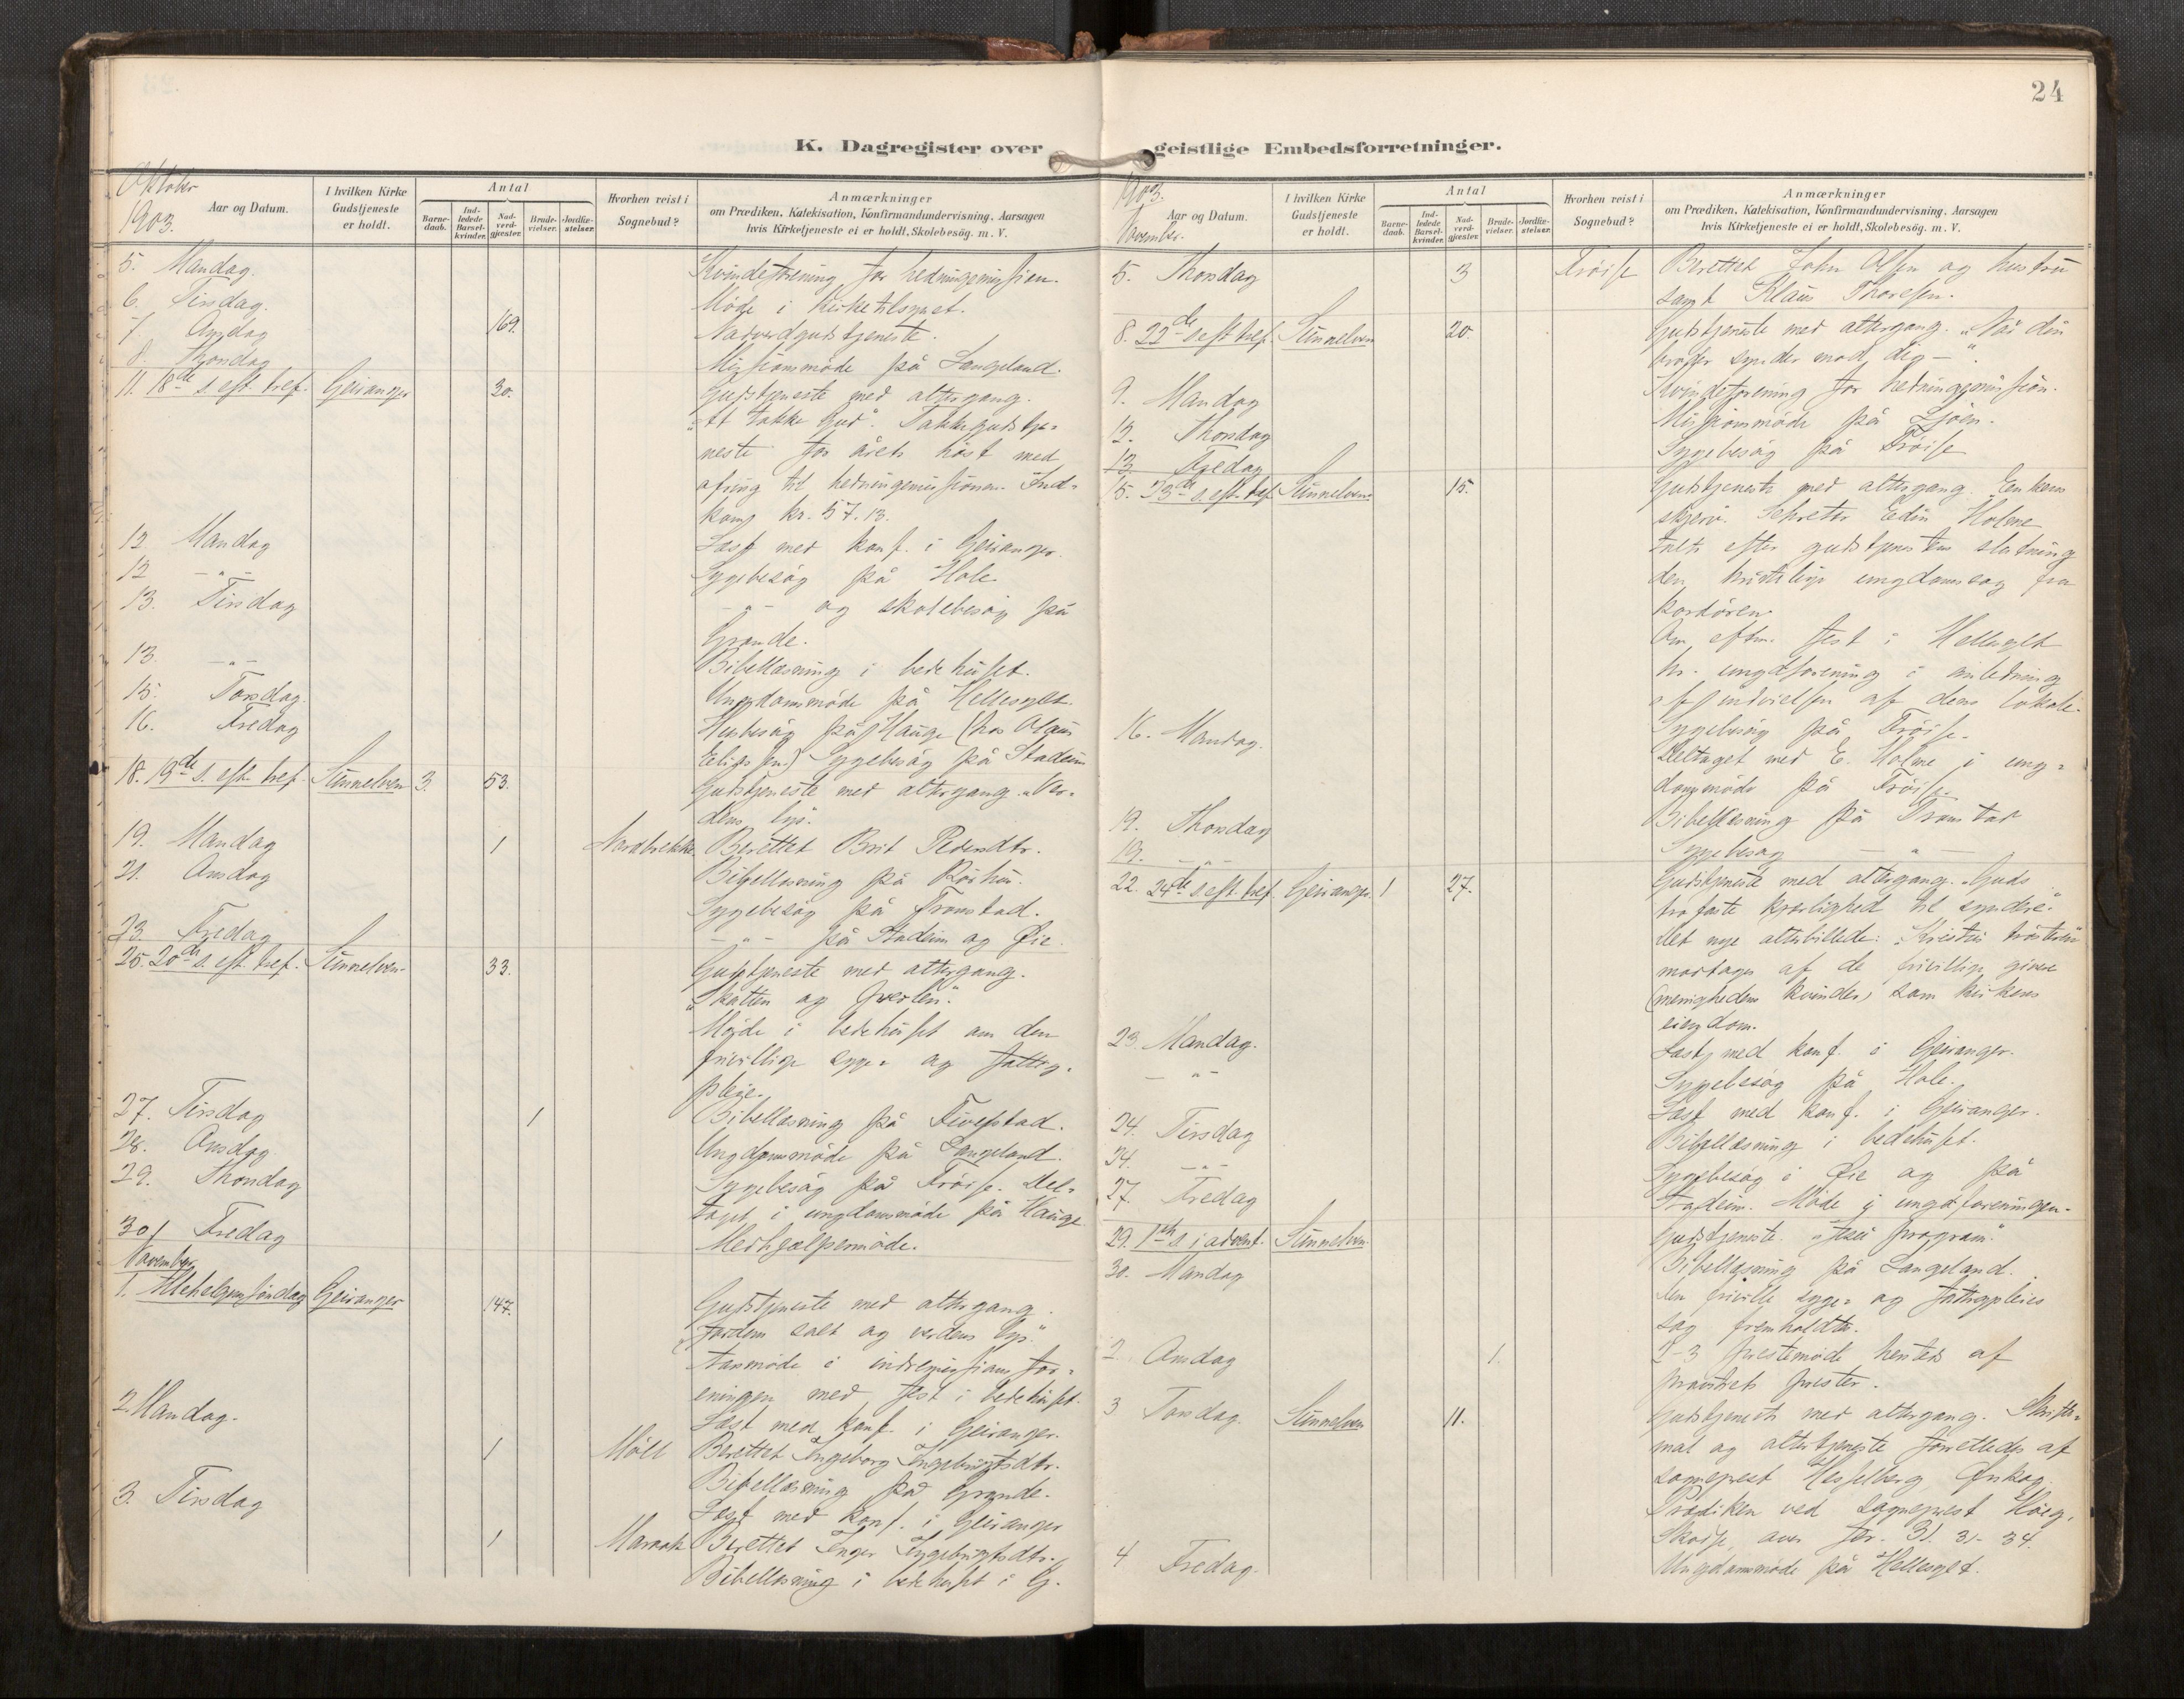 24
K. Dagregister over geistlige Embedsforretninger.
Oktober
1903.
Aar og Datum.
I hvilken Kirke Gudstjeneste er holdt.
Antal
Barne-daab.
Ind-ledede Barsel-kvinder.
Nad-verd-gjæster.
Brude-vielser.
Jordfæ-stelser.
Hvorhen reist i Sognebud?
Anmærkninger
om Prædiken, Katekisation, Konfirmandundervisning, Aarsagen
hvis Kirketjeneste ei er holdt, Skolebesög. m. V.
5. Mandag. Kvindeforening for hedningemissionen.
6. Tirsdag. Møde i kirketilsynet.
7. Onsdag 169. Nadverdgudstjeneste.
8. Thorsdag Missionsmøde på Langeland.
11. 18de s. eft. tref. Geiranger 30. Gudstjeneste med altergang.
"At takke Gud". Takkegudstje-
neste for årets høst med
ofring til hedningemissionen. Ind-
kom kr. 57.13.
12 Mandag Læst med konf. i Geiranger.
12 -"- Sygebesøg på Hole.
13. Tirsdag -"- og skolebesøg på
Grande.
13. -"- Bibellæsning i bedehuset.
15. Torsdag Ungdomsmøde på Hellesylt.
16. Fredag Husbesøg på Hauge (hos Olaus
Eliassen.) Sygebesøg på Stadeim
18. 19de s. eft. tref. Sunnelven 3. 53. Gudstjeneste med altergang. "Ver-
dens lys."
19. Mandag 1 Nordbrekke Berettet Brit Pedersdtr.
21. Onsdag Bibellæsning på Røshus.
Sygebesøg på Tronstad.
23. Fredag -"- på Stadeim og Øie.
25. 20de s. eft. tref. Sunnelven. 33. Gudstjeneste med altergang.
"Skatten og perlen."
Møde i bedehuset om den
frivillige syge- og fattig-
pleie.
27. Tirsdag 1 Bibellæsning på Fivelstad.
28. Onsdag Ungdomsmøde på Langeland.
29. Thorsdag Sygebesøg på Frøise. Del-
taget i ungdomsmøde på Hauge
30. Fredag Medhjælpermøde.
November
1. Allehelgenssøndag Geiranger 147. Gudstjeneste med altergang.
"Jordens salt og verdens lys."
Årsmøde i indremissionsfor-
eningen med fest i bedehuset.
2. Mandag. Læst med konf. i Geiranger.
1 Møll Berettet Ingeborg Ingebrigtsdtr.
Bibellæsning på Grande.
3. Tirsdag Læst med konf. i Geiranger
1 Maraak Berettet Inger Ingebrigtsdtr.
Bibellæsning i bedehuset i G.
1903.
November.
Aar og Datum.
I hvilken Kirke Gudstjeneste er holdt.
Antal
Barne-daab.
Ind-ledede Barsel-kvinder.
Nad-verd-gjæster.
Brude-vielser.
Jordfæ-stelser.
Hvorhen reist i Sognebud?
Anmærkninger
om Prædiken, Katekisation, Konfirmandundervisning, Aarsagen
hvis Kirketjeneste ei er holdt, Skolebesög. m. V.
5. Thorsdag 3 Frøise Berettet John Olsen og hustru
samt Klaus Thoresen.
8. 22de s. eft. tref. Sunnelven 20. Gudstjeneste med altergang. "Når din
broder synder mod dig -".
9. Mandag Kvindeforening for hedningemissionen.
12. Thorsdag Missionsmøde på Ljøen.
13. Fredag Sygebesøg på Frøise
15. 23de s. eft. tref. Sunnelven. 15. Gudstjeneste med altergang. Enkens
skjerv. Sekretær Edin Holme
talte efter gudstjenestens slutning
den kristelige ungdomssag fra
kordøren.
Om eftm. fest i Hellesylt
kr. ungdforening i anledning
af indvielsen af dens lokale.
16. Mandag. Sygebesøg på Frøise.
Deltaget med E. Holme i ung-
domsmøde på Frøise.
19. Thorsdag Bibellæsning på Tronstad
19. -"- Sygebesøg -"-
22. 24de s. eft. tref. Geiranger. 1 27. Gudstjeneste med altergang. "Guds
trofaste kærlighed til syndere."
Det nye alterbillede: "Kristus trøsteren"
modtages af de frivillige givere
(menighedens kvinder) som kirkens
eiendom.
23. Mandag. Læst med konf. i Geiranger.
-"- Sygebesøg på Hole.
24. Tirsdag Læst med konf. i Geiranger.
24. -"- Bibellæsning i bedehuset.
27. Fredag Sygebesøg i Øie og på
Stadeim. Møde i ungdforeningen.
29. 1ste s. i advent. Sunnelven. Gudstjeneste. "Jesu program."
30. Mandag Bibellæsning på Langeland.
Den frivill. syge- og fattigpleies
sag fremholdtes.
2 Onsdag 1. 2-3 prestemøde af
provstiets prester.
3 Torsdag. Sunnelven 11. Gudstjeneste med altergang. Skrifte-
mål og altertjeneste forrettedes af
sogneprest Hesselberg, Ørskog.
Prædiken ved sogneprest Høeg,
Skodje, over Jer. 31. 31-34.
4 Fredag. Ungdomsmøde på Hellesylt.